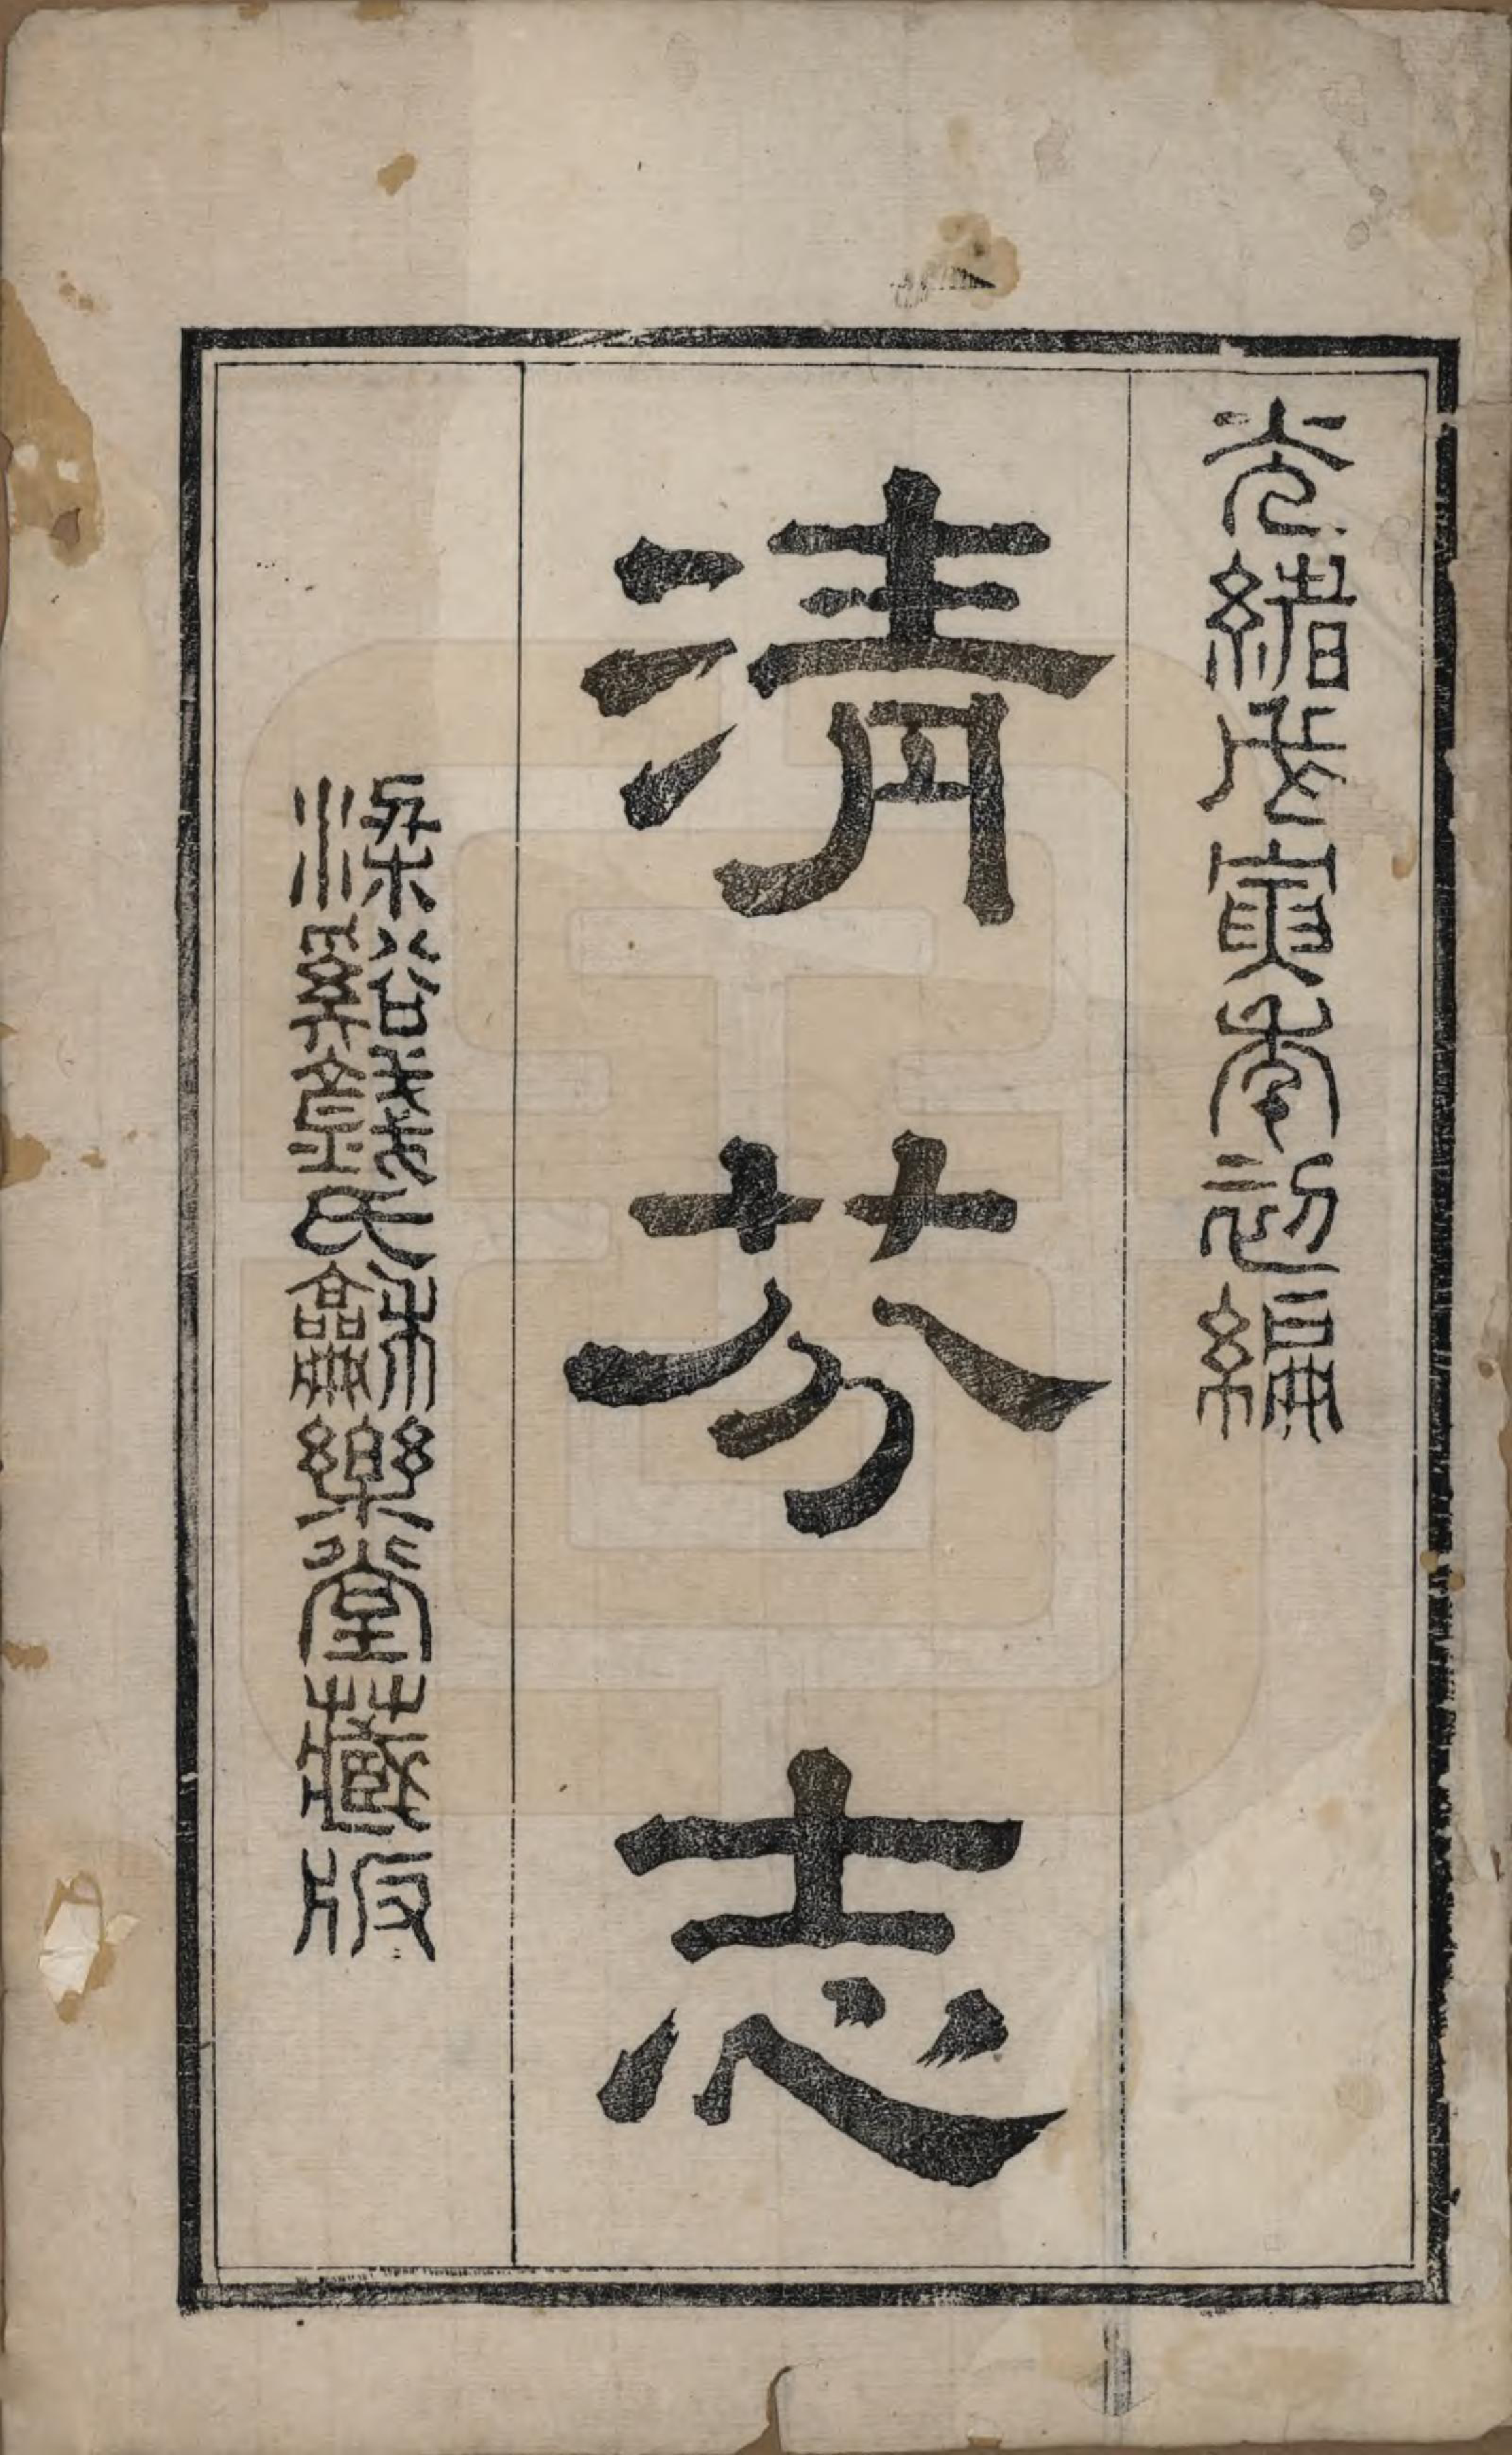 光緒戊寅季初編
清芬志
梁谿錢氏龢樂堂藏版